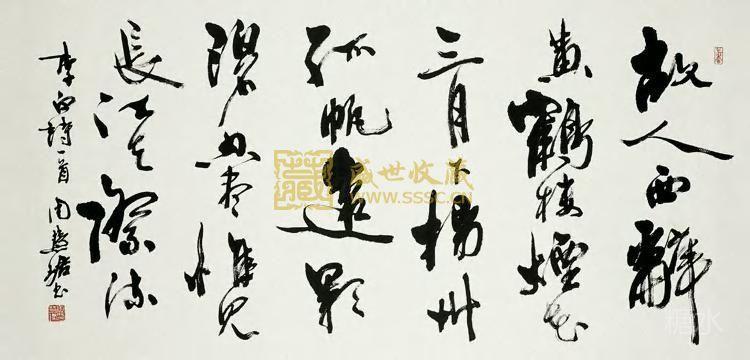 故人西辭
黄鶴樓煙花
三月下揚州
孤帆遠影
碧空盡惟見
長江天際流
李白詩一首 周慧珺书
藏
盛世收藏
www.sssc.cn
糖水